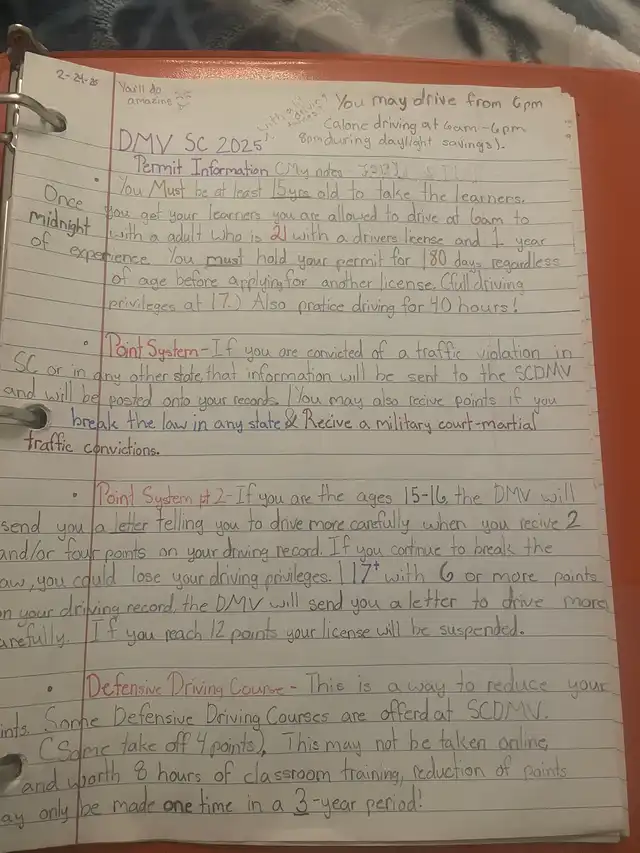 2-24-25
You'll do
amazing
You may drive from 6pm
(alone driving at 6am-6pm
8pm during daylight savings).
DMV SC 2025!
Permit Information (My notes
• You Must be at least 15yrs old to take the learners.
Once you get your learners you are allowed to drive at 6am to
midnight with a adult who is 21 with a drivers license and 1 year
of experience. You must hold your permit for 180 days regardless
of age before applying for another license, (full driving
privileges at 17.) Also pratice driving for 40 hours!
• Point System - If you are convicted of a traffic violation in
SC or in any other state, that information will be sent to the SCDMV
and will be posted onto your records. | You may also recive points if you
break the law in any state & Recive a military court-martial
traffic convictions.
• Point System pt 2 - If you are the ages 15-16, the DMV will
send you a letter telling you to drive more carefully when you recive 2
and/or four points on your driving record. If you continue to break the
aw, you could lose your driving privileges. | 17+ with 6 or more points
n your driving record, the DMV will send you a letter to drive more
arefully. If you reach 12 points your license will be suspended.
• Defensive Driving Course - This is a way to reduce your
ints. Some Defensive Driving Courses are offerd at SCDMV.
(Some take off 4 points), This may not be taken online,
and worth 8 hours of classroom training, reduction of points
ay only be made one time in a 3-year period!